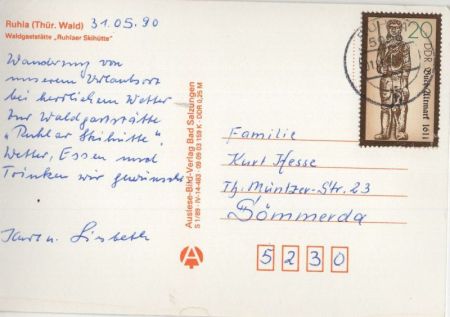 Ruhla (Thür. Wald) 31.05.90
Waldgaststätte „Ruhlaer Skihütte“
Wanderung von
unserem Urlaubsort
bei herrlichem Wetter
zur Waldgaststätte
"Ruhlar Skihütte".
Wetter, Essen und
Trinken wie gewünscht
Karl u. Lisbeth
Auslese-Bild-Verlag Bad Salzungen
S 1/89 · IV-14-483 · 09 09 03 159 K · DDR 0,25 M
20
DDR
1611
Familie
Kurt Hesse
Th. Müntzer-Str. 23
Sömmerda
5230